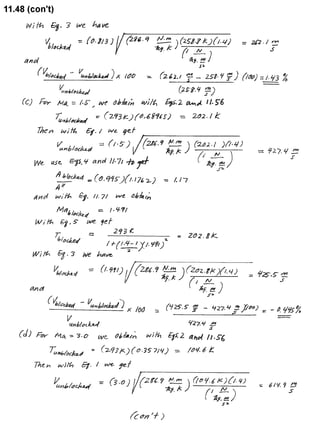 11.48 (con't)
With Eq. 3 we have
V_blocked = (0.813) √((286.9 N.m/kg.K)(258.8 K)(1.4) / (1 N/(kg.m/s²))) = 262.1 m/s
and
(V_blocked - V_unblocked)/V_unblocked x 100 = (262.1 m/s - 258.4 m/s)(100)/(258.4 m/s) = 1.43 %
(c) For Ma = 1.5, we obtain with Eqs. 2 and 11.56
T_unblocked = (293 K)(0.68965) = 202.1 K
Then with Eq. 1 we get
V_unblocked = (1.5) √((286.9 N.m/kg.K)(202.1 K)(1.4) / (1 N/(kg.m/s²))) = 427.4 m/s
We use Eqs. 4 and 11.71 to get
A_blocked/A* = (0.995)(1.1762) = 1.17
and with Eq. 11.71 we obtain
Ma_blocked = 1.491
With Eq. 5 we get
T_blocked = 293 K / (1 + (1.4-1/2)(1.491)²) = 202.8 K
With Eq. 3 we have
V_blocked = (1.491) √((286.9 N.m/kg.K)(202.8 K)(1.4) / (1 N/(kg.m/s²))) = 425.5 m/s
and
(V_blocked - V_unblocked)/V_unblocked x 100 = (425.5 m/s - 427.4 m/s)(100)/(427.4 m/s) = - 0.445 %
(d) For Ma = 3.0 we obtain with Eqs. 2 and 11.56
T_unblocked = (293 K)(0.35714) = 104.6 K
Then with Eq. 1 we get
V_unblocked = (3.0) √((286.9 N.m/kg.K)(104.6 K)(1.4) / (1 N/(kg.m/s²))) = 614.9 m/s
(con't)